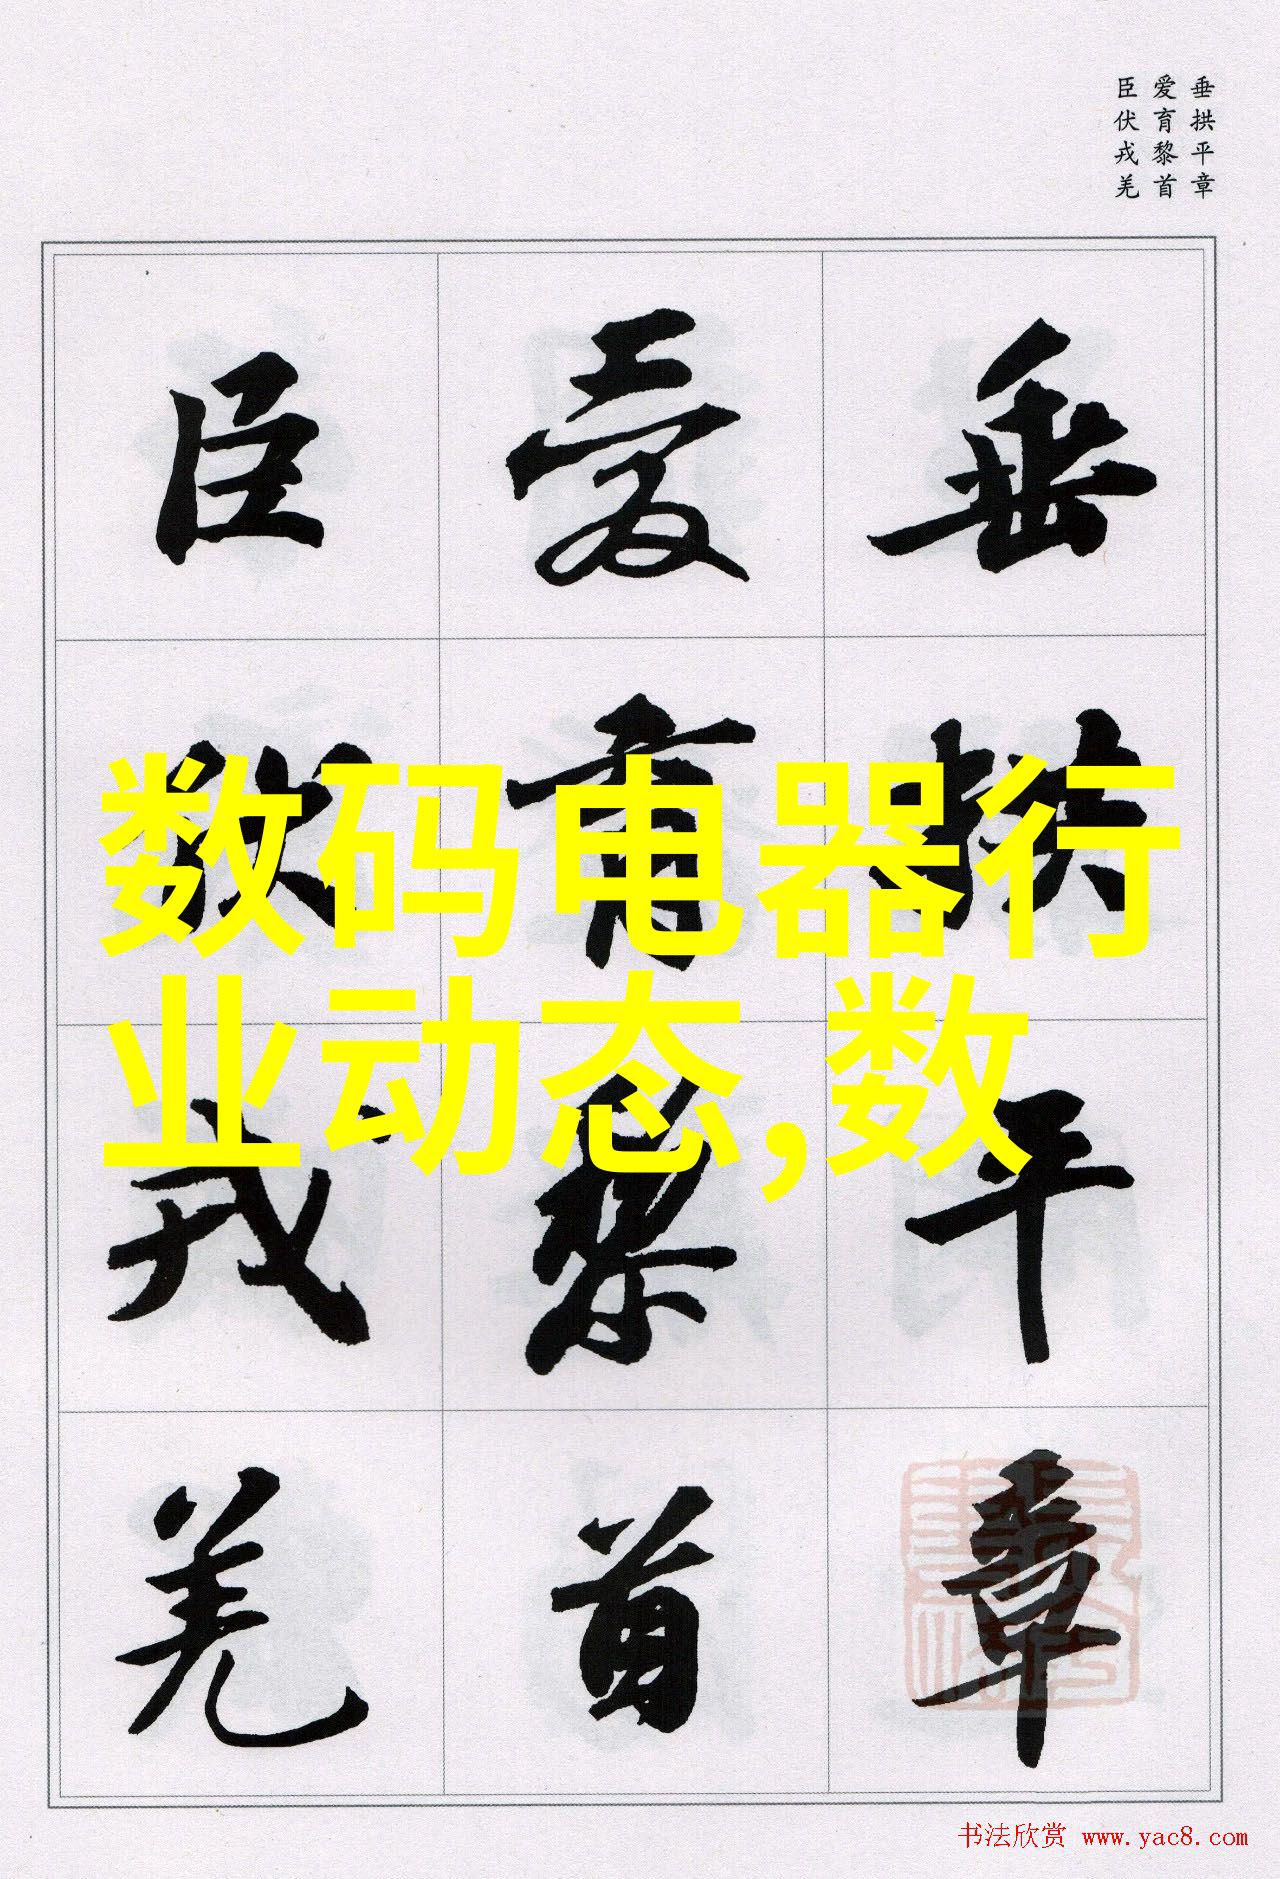 垂拱平章
爱育黎首
臣伏戎羌
垂拱平章
爱育黎首
臣伏戎羌
数码电器行
业动态,数
书法欣赏 www.yac8.com